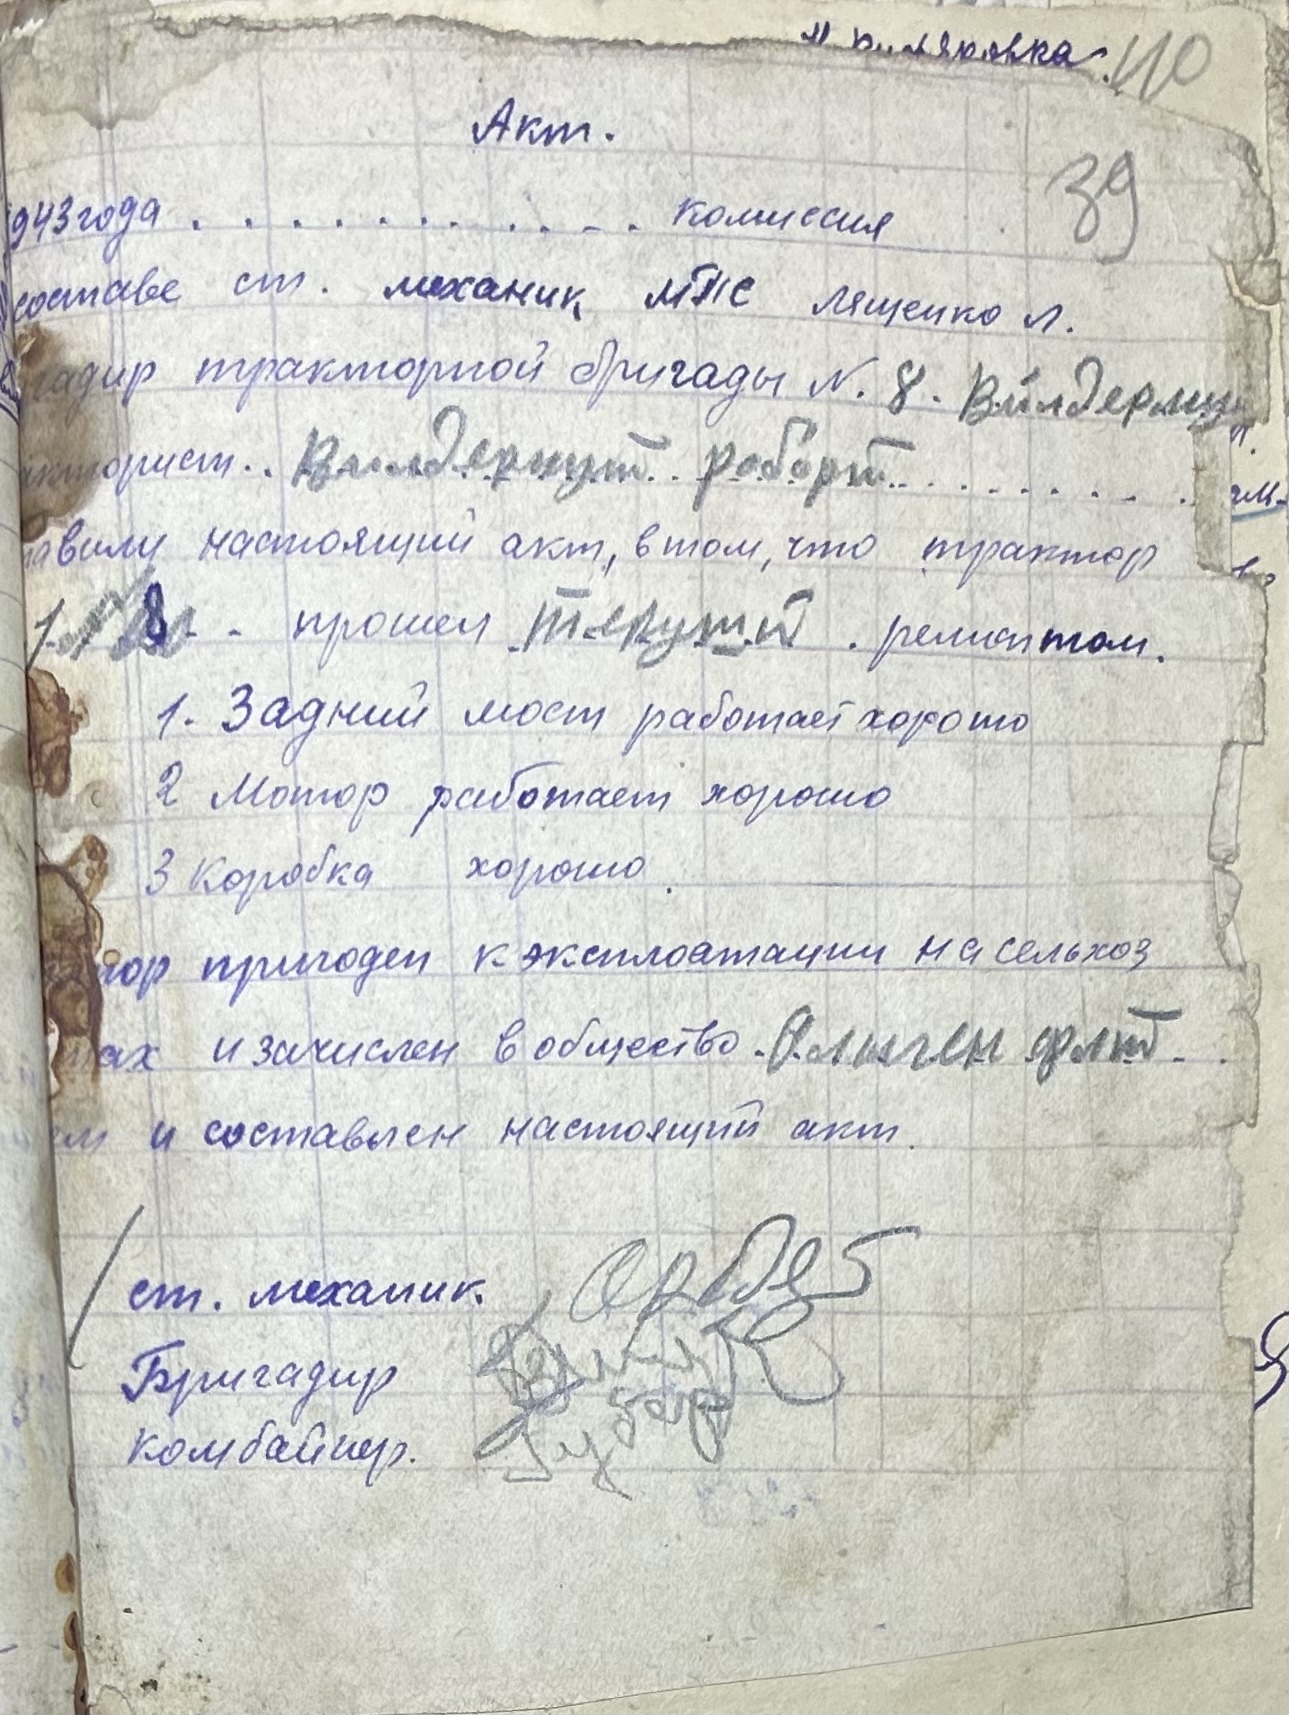 40
Акт.
39
943 года . . . . . . . . . . . комиссия
составе ст. механик МТС Лященко Л.
гадир тракторной бригады N. 8. Вилдермут
кторист.. Вилдермут роберт . . . . . . . .
авили настоящий акт, в том, что трактор
прошел текущий . ремонтом.
1. Задний мост работает хорошо
2 Мотор работает хорошо
3 Коробка хорошо.
тор пригоден к эксплоатации на сельхоз
тах и зачислен в общество
ем и составлен настоящий акт.
ст. механик.
Бригадир
комбайнер.